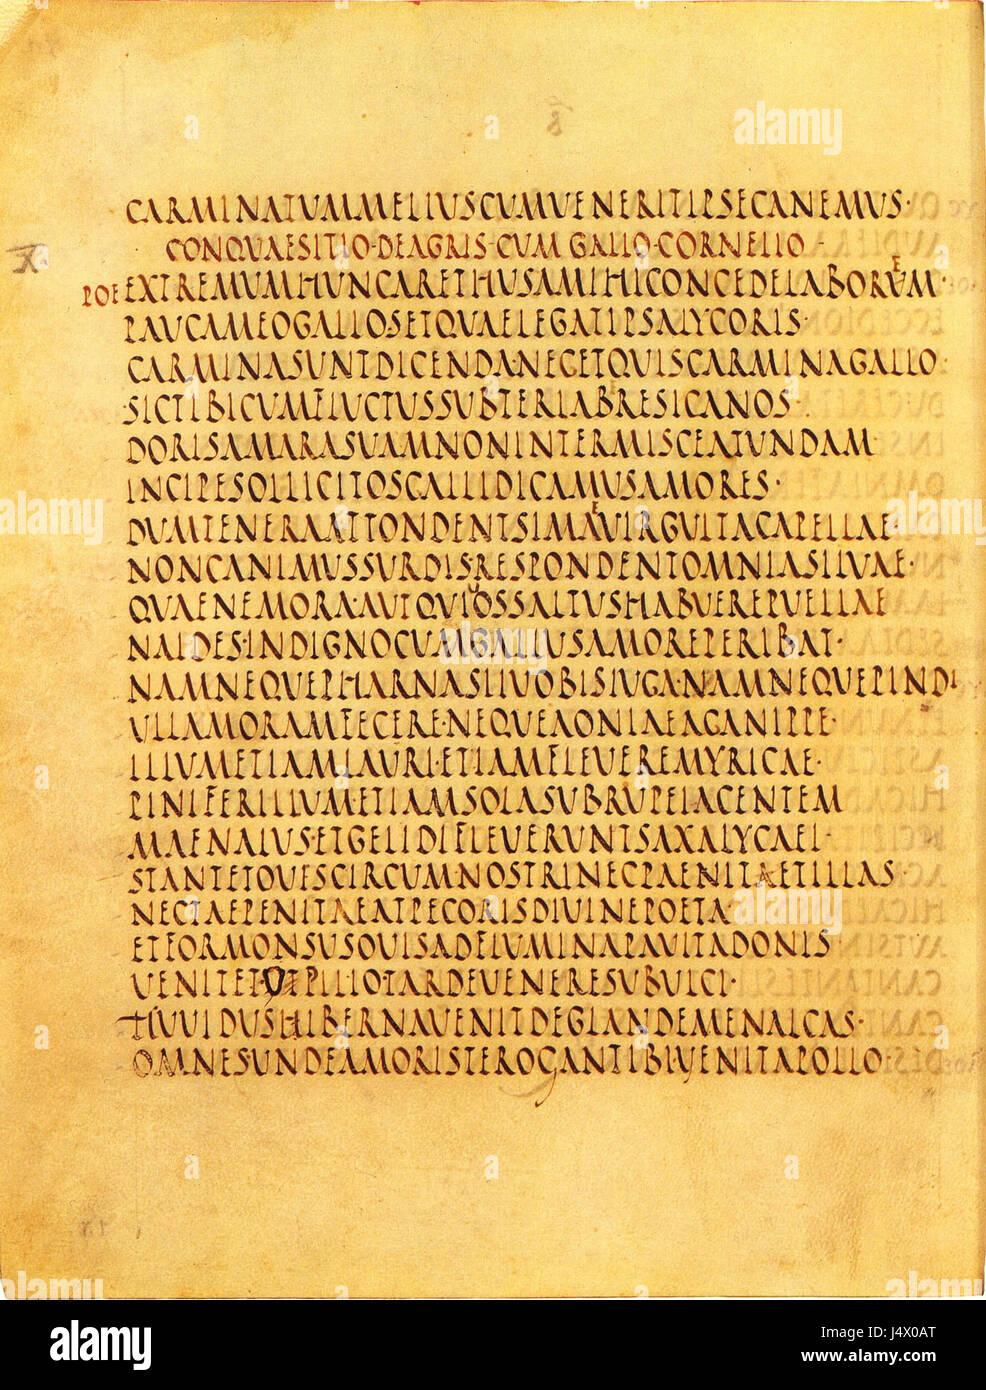 CARMINATUMMELIUSCUMVENERITIPSECANEMUS·
CONQUAESITIO·DEAGRIS·CUMGALLO·CORNELIO
POE EXTREMUMHUNCARETHUSAMIHICONCEDELABORUM·
PAUCAMEOGALLO·SETQUAELEGATIPSALYCORIS·
CARMINASUNTDICENDA·NEGETQUISCARMINAGALLO
SICTIBICUMFLUCTUSSUBTERLABRESICANOS·
DORISAMARASUAMNONINTERMISCEATUNDAM
INCIPESOLLICITOSGALLIDICAMUSAMORES·
DUMTENERAATTONDENTSIMAEVIRGULTACAPELLAE·
NONCANIMUSSURDIS·RESPONDENTOMNIASILUAE·
QUAENEMORA·AUTQUIUOSSALTUSHABUEREPUELLAE
NAIDES·INDIGNOCUMGALLUSAMOREPERIBAT·
NAMNEQUEPHARNASIUOBISIUGA·NAMNEQUEPINDI
ULLAMORAMFECERE·NEQUEAONIAEAGANIPPE·
ILLUMETIAMLAURI·ETIAMFLEUEREMYRICAE·
PINIFERILLUMETIAMSOLASUBRUPEIACENTEM
MAENALUS·ETGELIDIFLEUERUNTSAXALYCAEI·
STANTETOUESCIRCUM·NOSTRINECPAENITAETILLAS·
NECTAEPENITAEATPECORISDIUINEPOETA·
ETFORMONSUSOUISADFLUMINAPAUITADONIS
UENITETUPILIOTARDEUENERESUBULCI·
UUIDUSHIBERNAUENITDEGLANDEMENALCAS·
OMNESUNDEAMORISTEROGANTIBIUENITAPOLLO·
alamy
J4X0AT
www.alamy.com